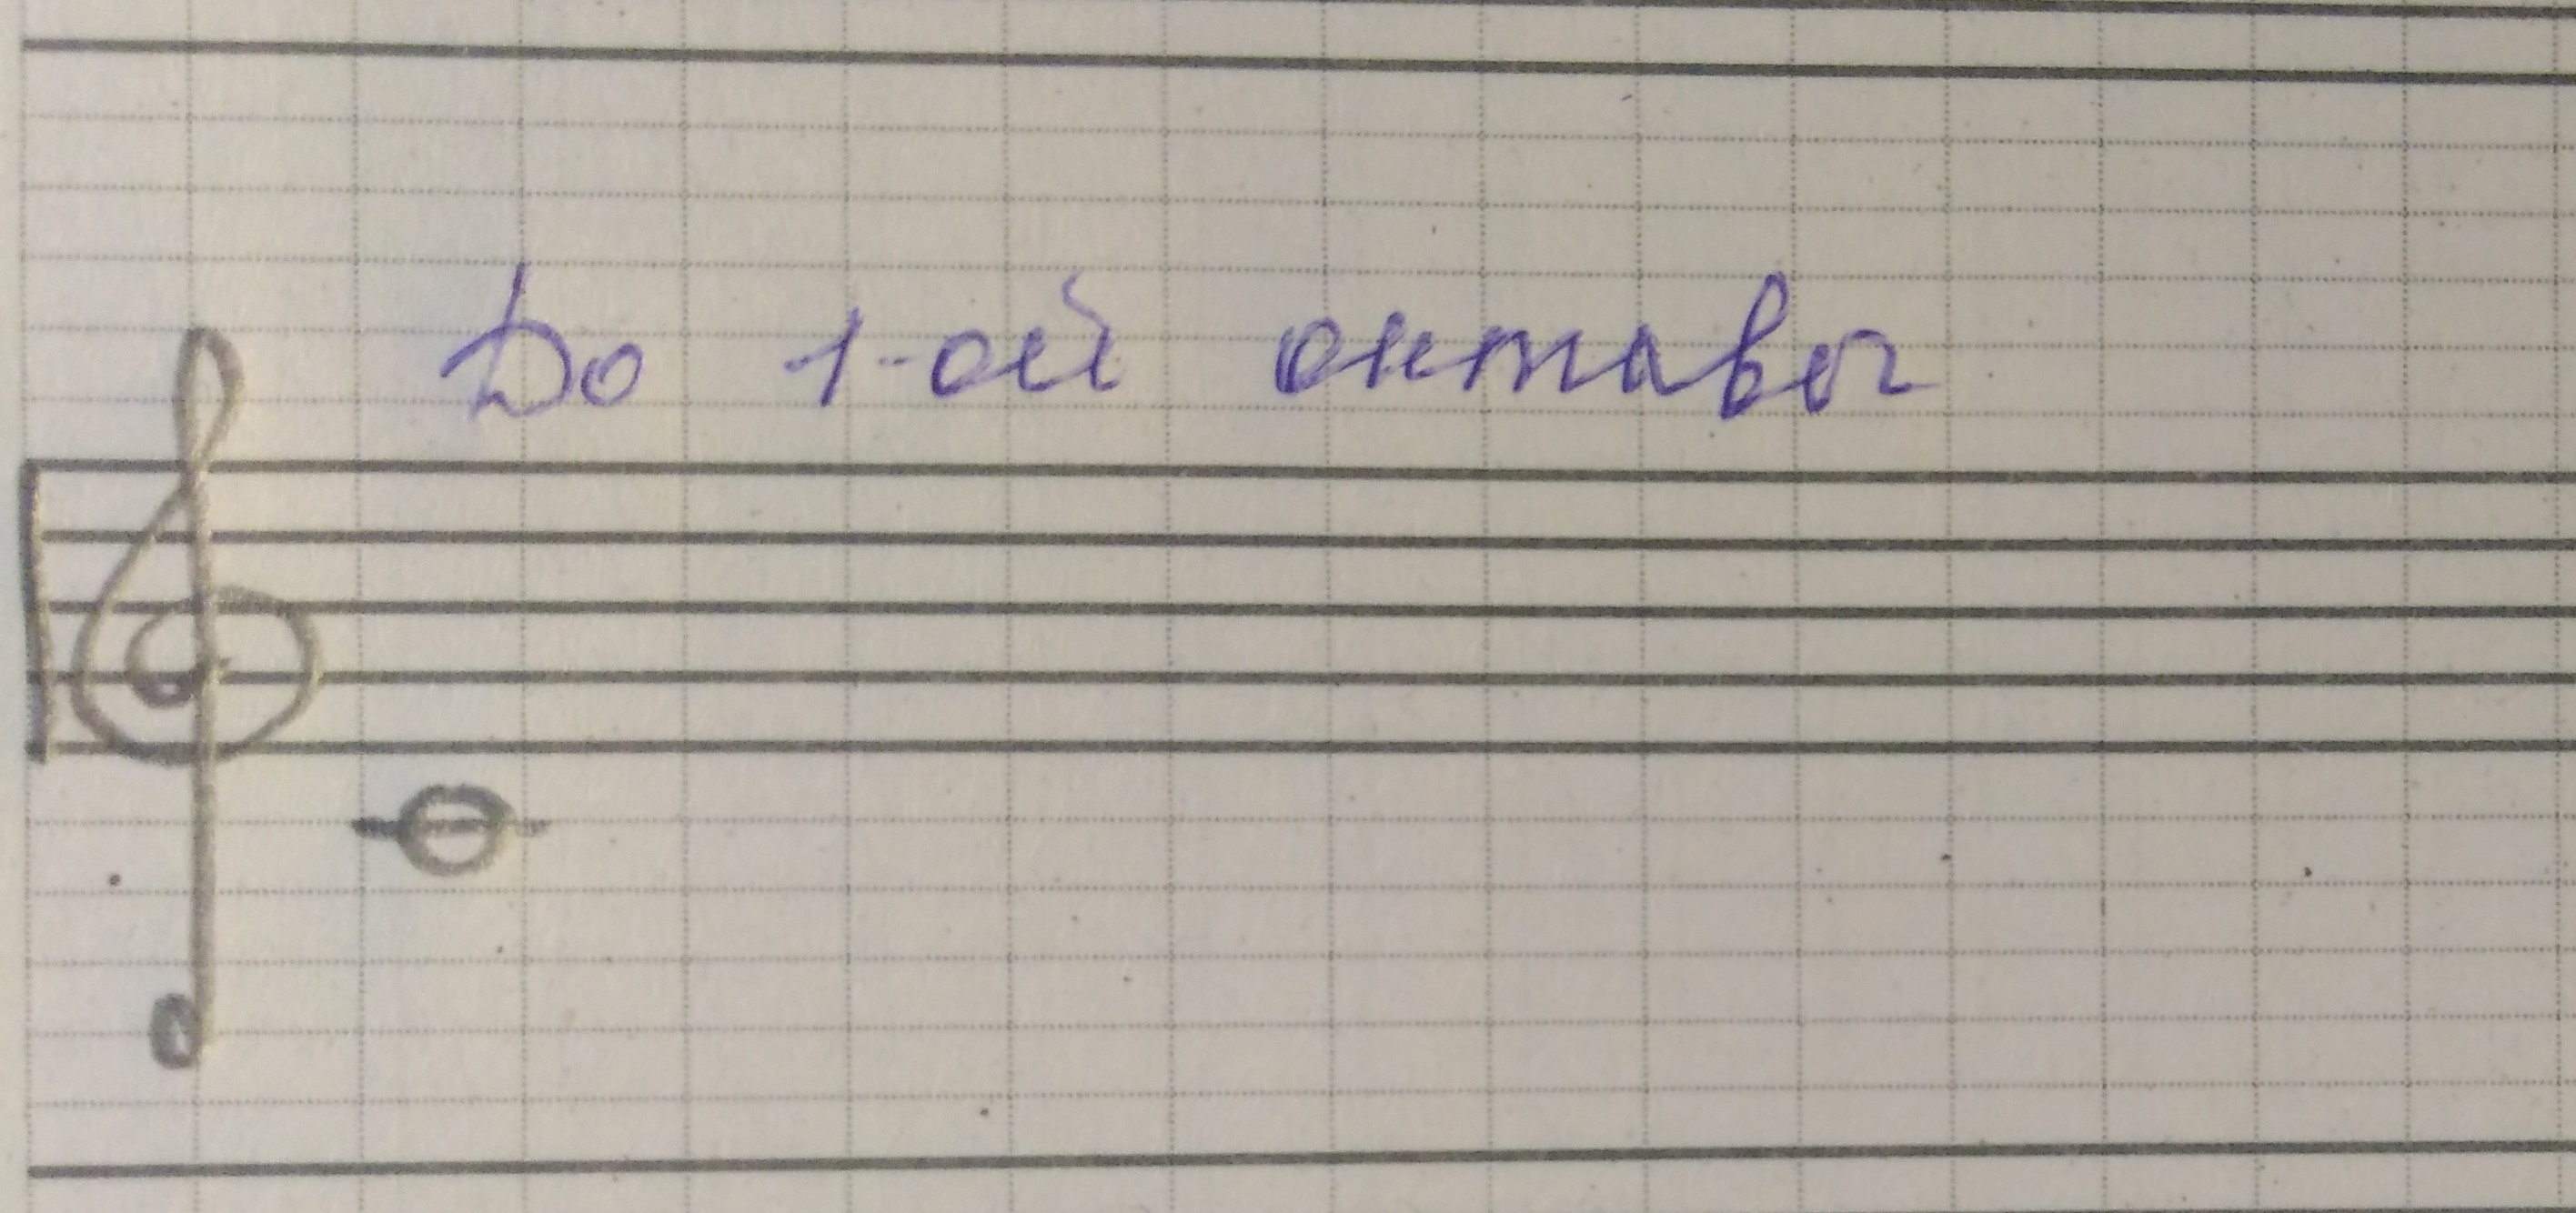 До 1-ой октавы